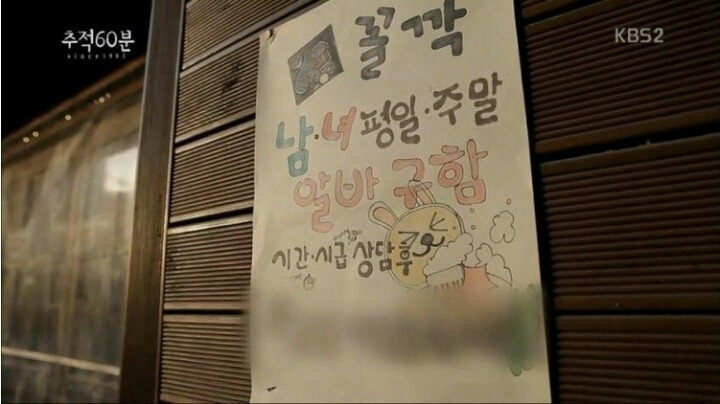 추적60분
since1983
KBS2
꼴깍
남·녀 평일·주말
알바 구함
시간·시급 상담후